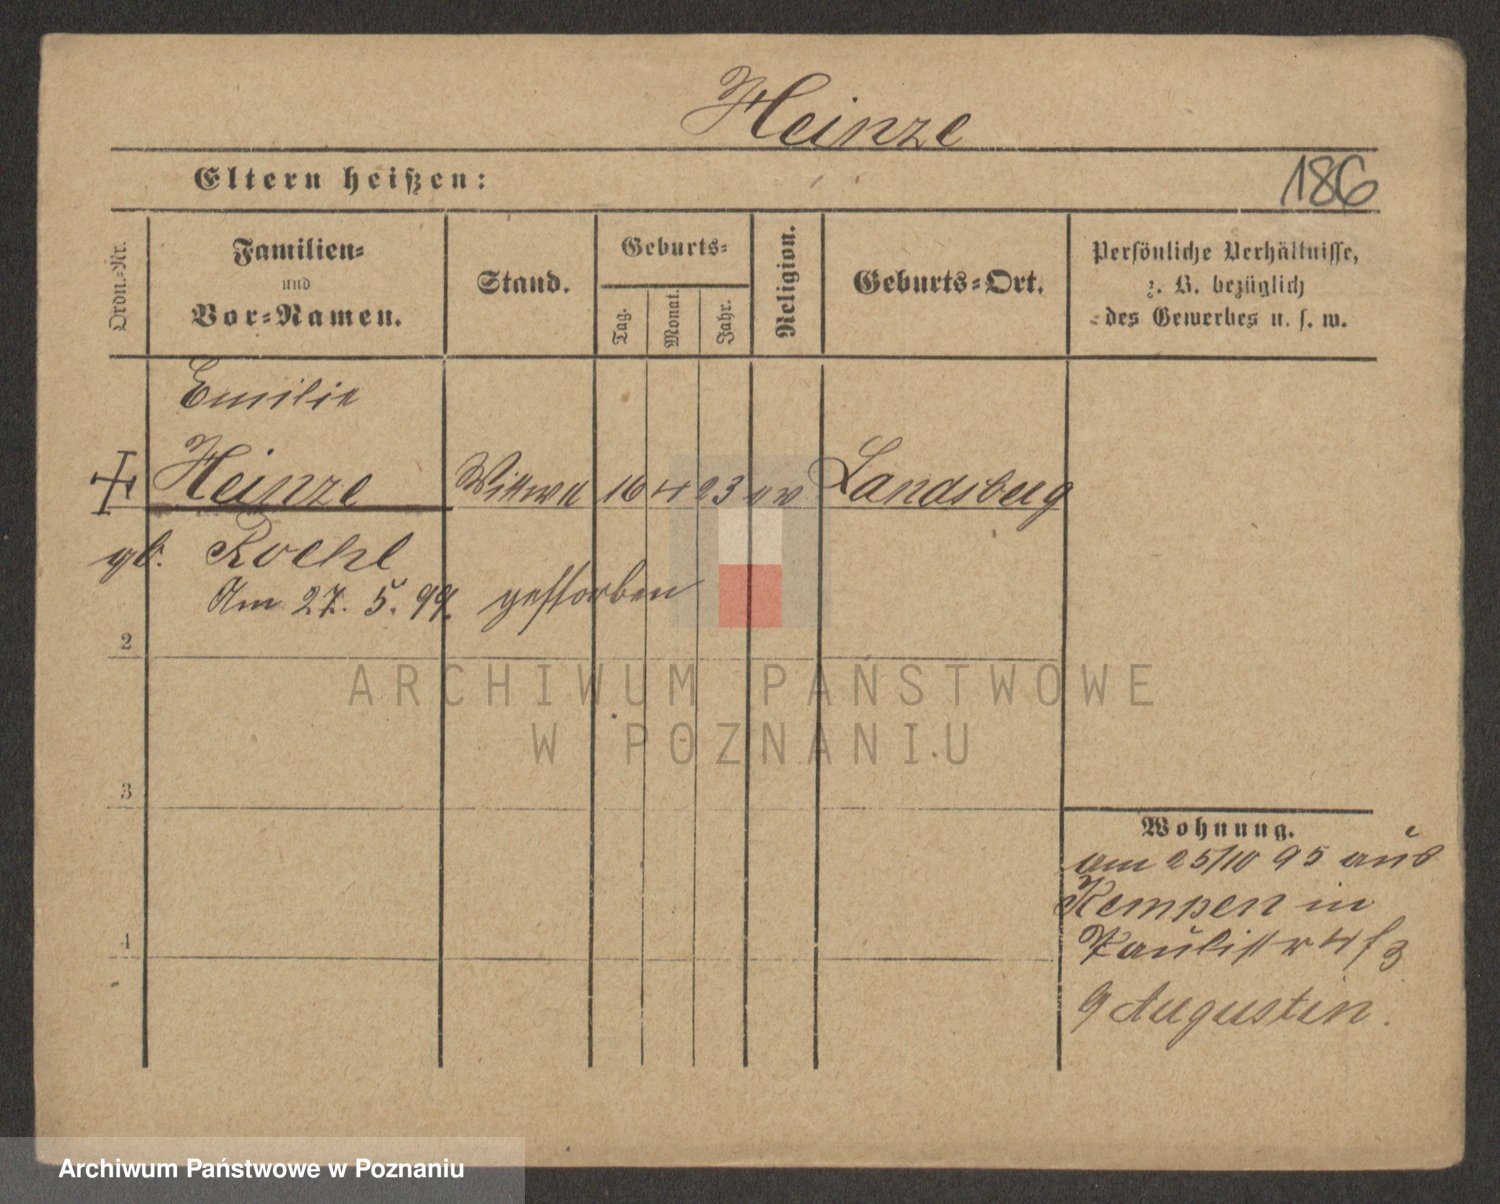 Heinze
Eltern heißen:
186
Ordn.-Nr.
Familien-
und
Vor-Namen.
Stand.
Geburts-
Tag.
Monat.
Jahr.
Religion.
Geburts-Ort.
Persönliche Verhältnisse,
z. B. bezüglich
des Gewerbes u. s. w.
Emilie
Heinze Wittwe 16 4 23 ev Landsberg
gb. Roehl
Am 27. 5. 99. gestorben
2
ARCHIWUM PAŃSTWOWE
W POZNANIU
3
Wohnung.
am 25/10 95 aus
Kempen in
Paulistr 4 f 3
Augustin.
4
Archiwum Państwowe w Poznaniu